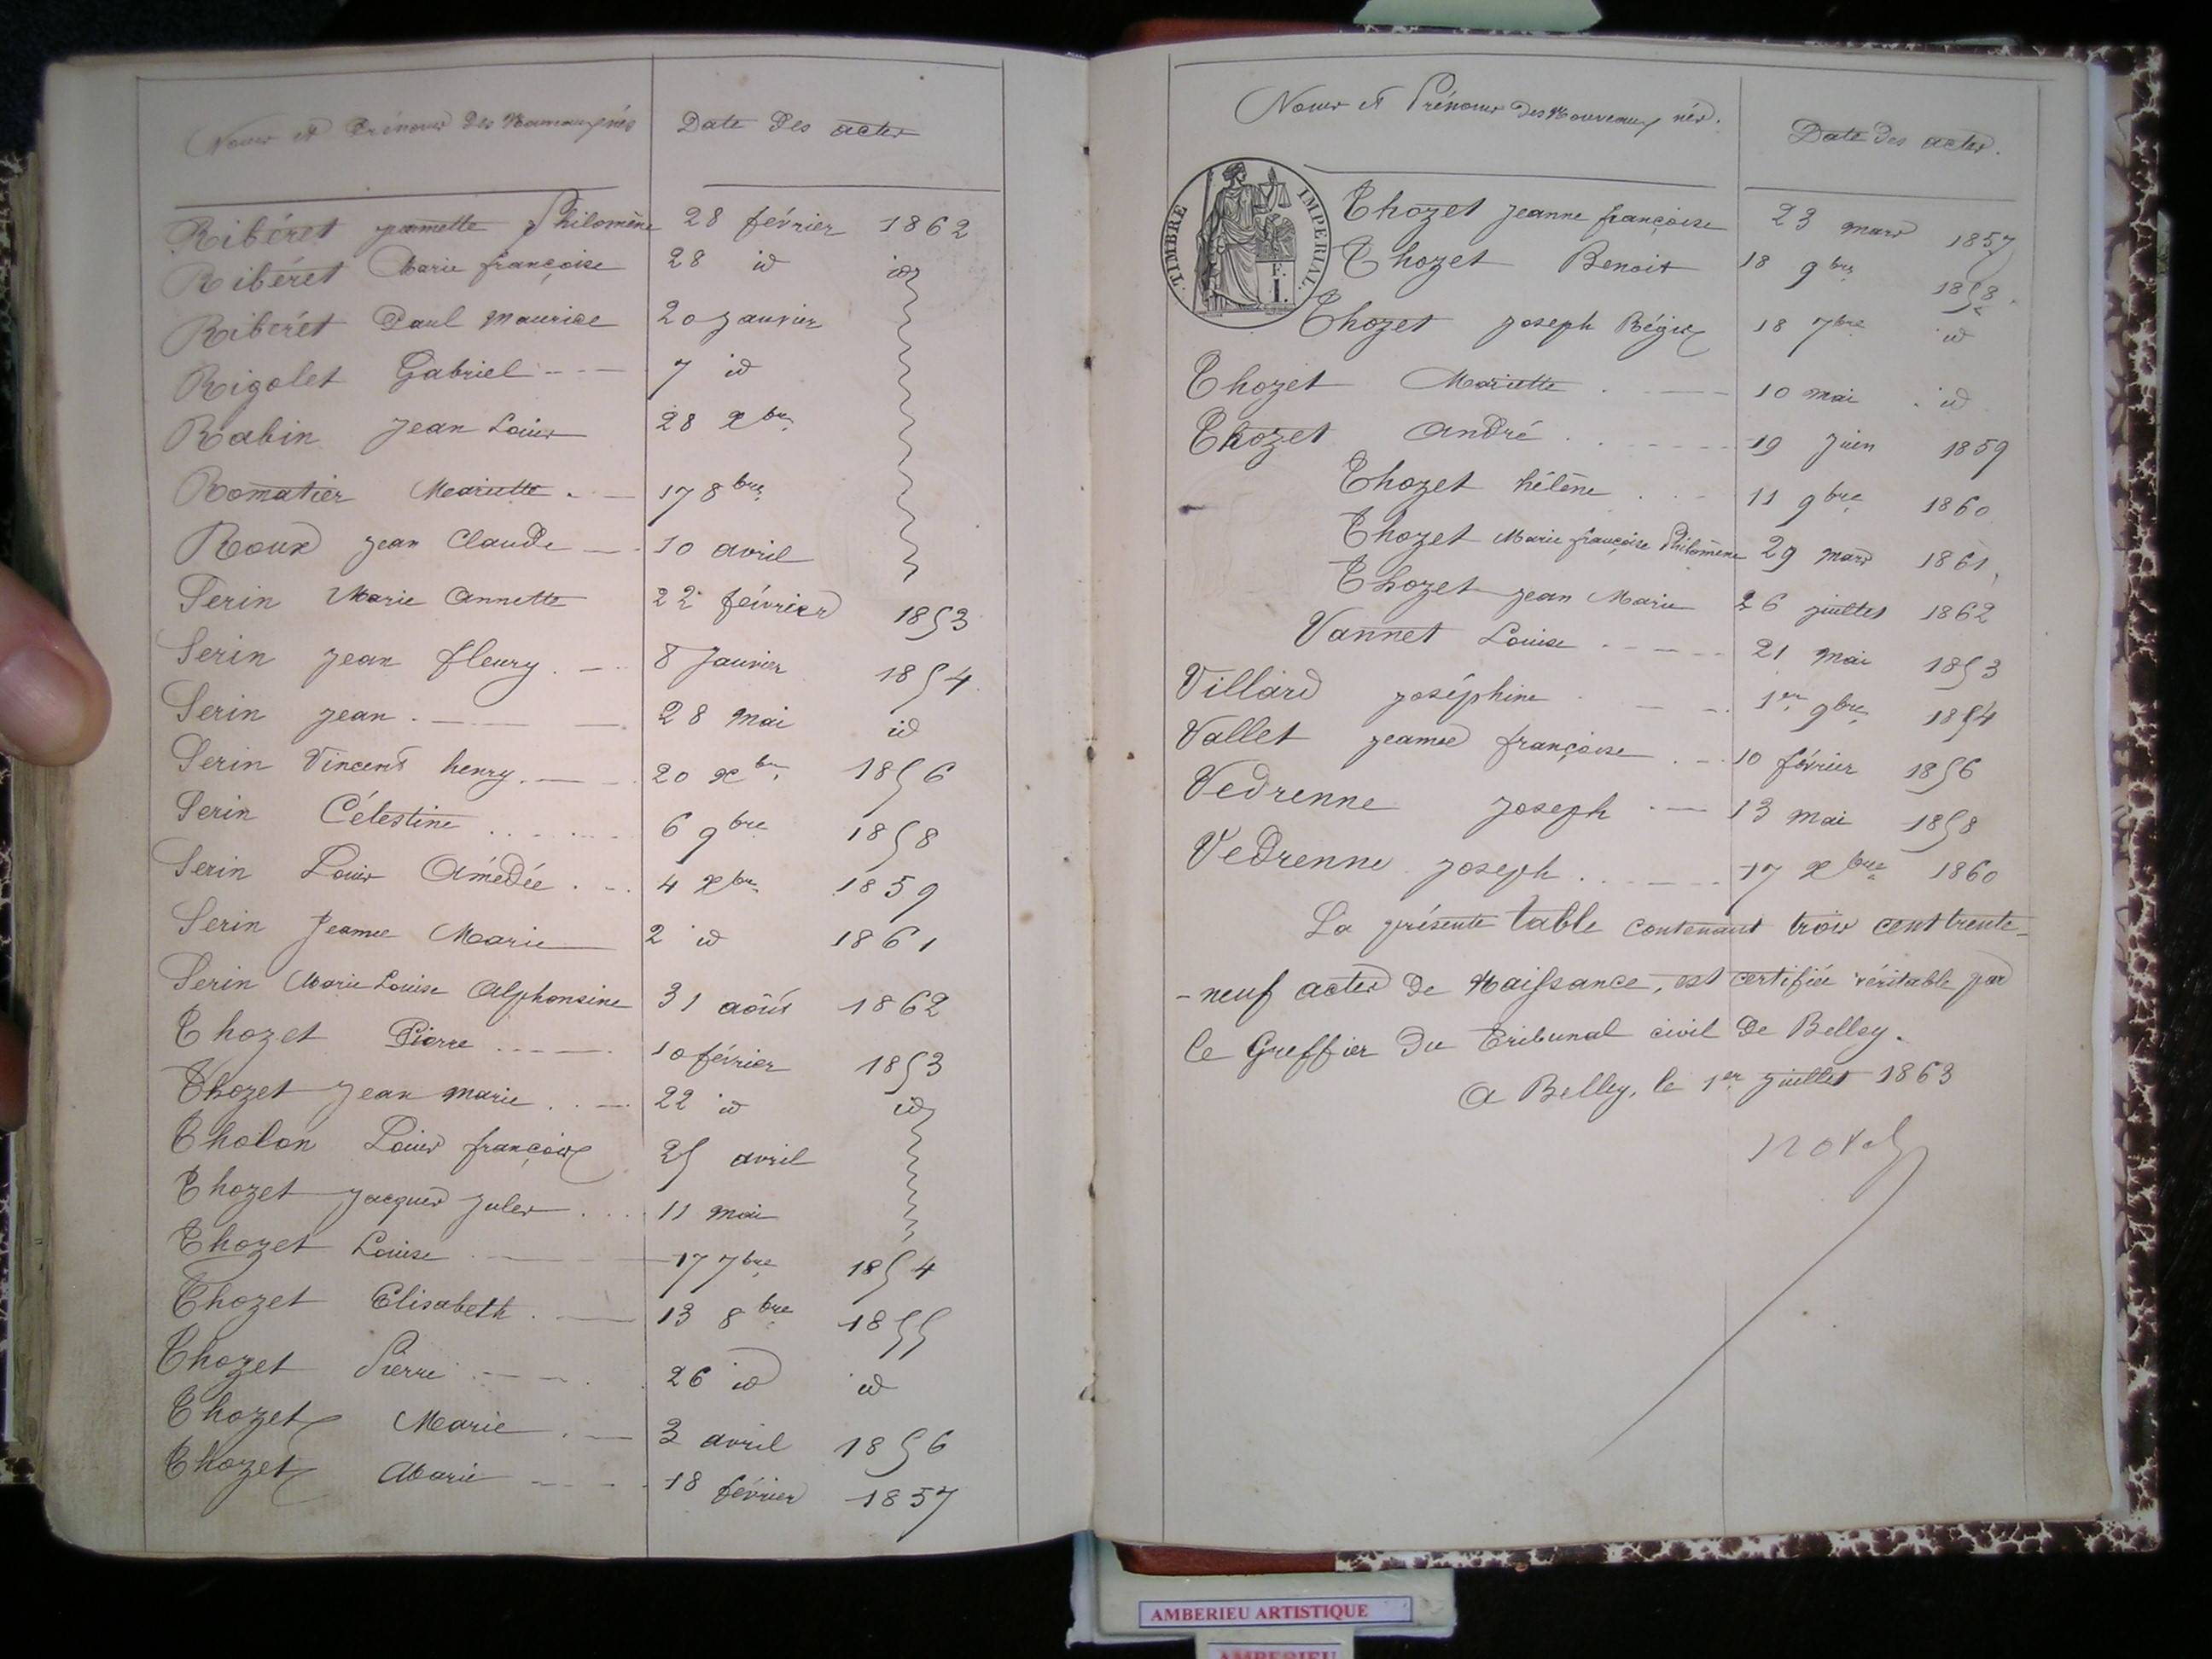 Noms et Prénoms des Nouveaux nés
Date des actes
Ribéret jeannette Philomène 28 février 1862
Ribéret Marie françoise 28 id id
Ribéret Paul Maurice 20 janvier
Rigolet Gabriel 7 id
Rabin Jean Louis 28 xbre
Romatier Mariette 17 8bre
Roux jean Claude 10 avril
Serin Marie Annette 22 février 1853
Serin jean fleury 8 Janvier 1854
Serin jean 28 mai id
Serin Vincent henry 20 xbre 1856
Serin Célestine 6 9bre 1858
Serin Louis Amédée 4 xbre 1859
Serin Jeanne Marie 2 id 1861
Serin Marie Louise Alphonsine 31 août 1862
Thozet Pierre 10 février 1853
Thozet Jean Marie 22 id id
Tholon Louis françois 25 avril
Thozet jacques jules 11 mai
Thozet Louise 17 7bre 1854
Thozet Elisabeth 13 8bre 1855
Thozet Pierre 26 id id
Thozet Marie 3 avril 1856
Thozet Marie 18 février 1857
Noms et Prénoms des Nouveaux nés.
Date des actes.
TIMBRE IMPERIAL.
F. I.
Thozet Jeanne françoise 23 mars 1857
Thozet Benoit 18 9bre 1858.
Thozet joseph Régis 18 7bre id
Thozet Mariette 10 mai id
Thozet André 19 Juin 1859
Thozet hélène 11 9bre 1860
Thozet Marie françoise Philomène 29 mars 1861
Thozet jean Marie 26 juillet 1862
Vannet Louise 21 mai 1853
Villard joséphine 1er 9bre 1854
Vallet jeanne françoise 10 février 1856
Vedrenne joseph 13 mai 1858
Vedrenne joseph 17 xbre 1860
La présente table contenant trois cent trente-
-neuf actes de Naissance, est certifiée véritable par
le Greffier du Tribunal civil de Belley.
A Belley, le 1er juillet 1863
AMBERIEU ARTISTIQUE
AMBERIEU